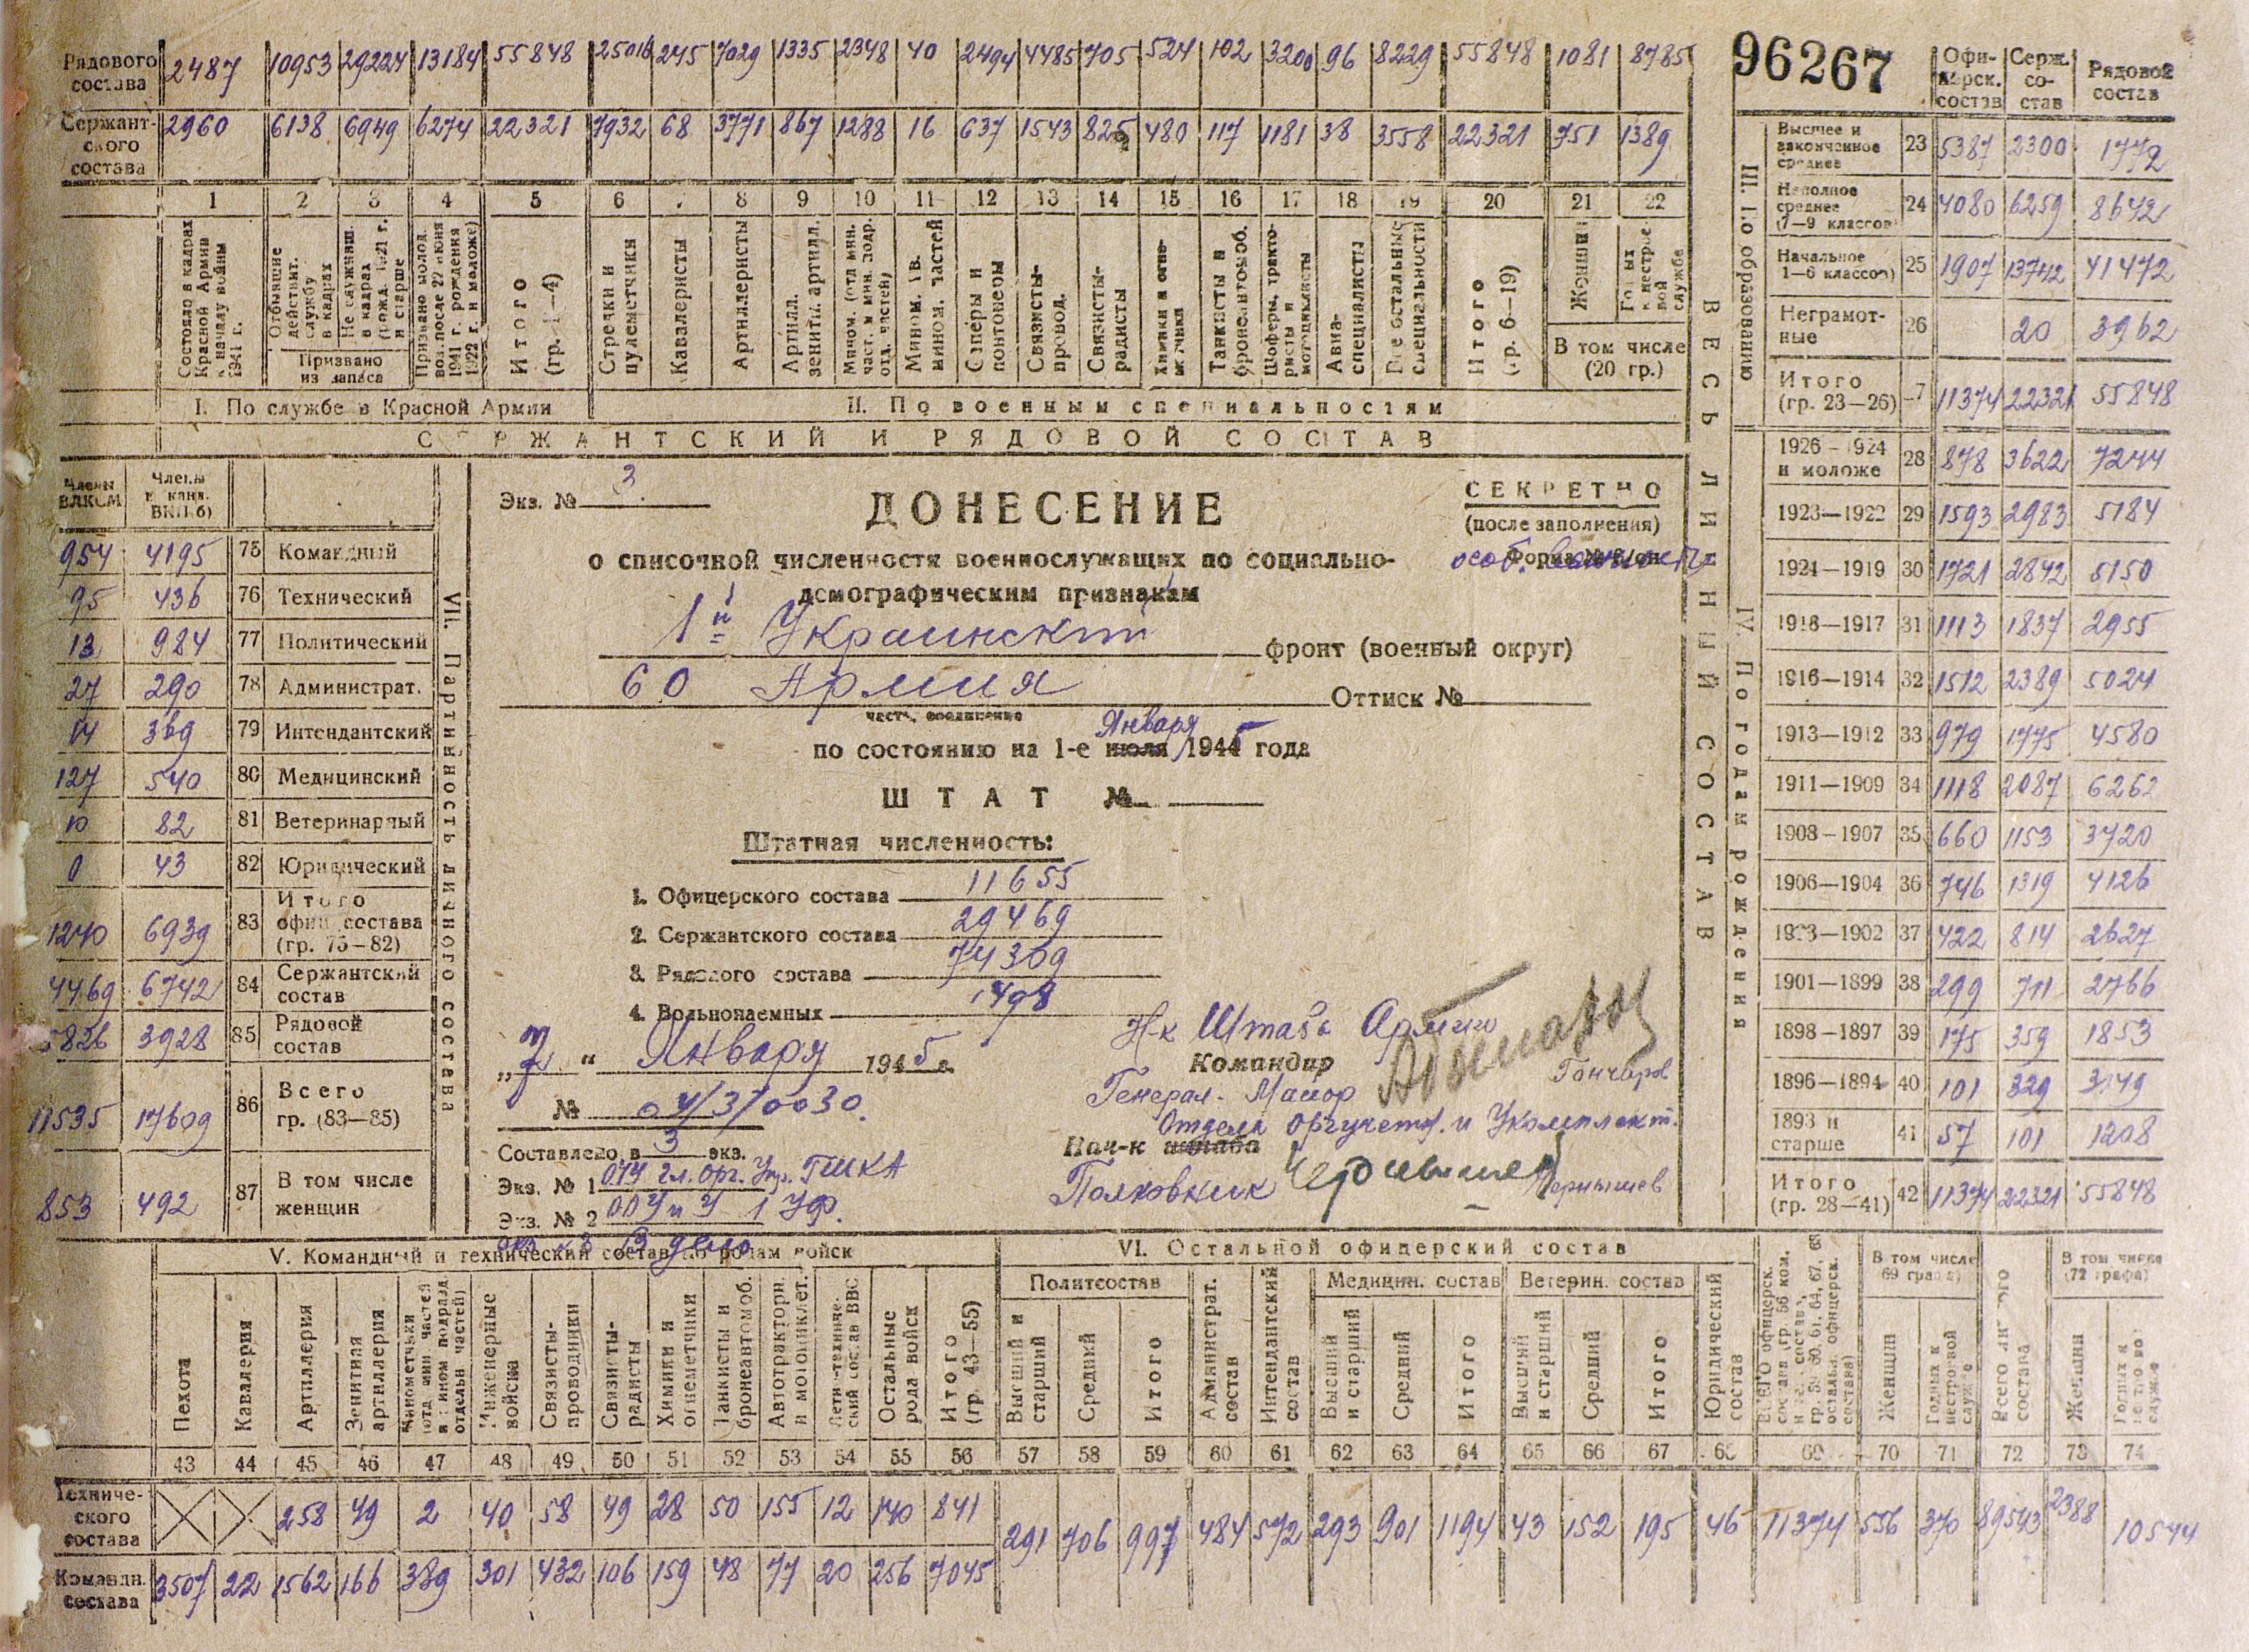 Рядового состава 2487 10953 29224 13184 55848 25016 245 7029 1335 2348 40 2494 4485 705 524 102 3200 96 8229 55848 1081 8785
Сержантского состава 2960 6138 6949 6274 22321 7932 68 3771 867 1288 16 637 1543 825 480 117 1181 38 3558 22321 751 1389
1 2 3 4 5 6 7 8 9 10 11 12 13 14 15 16 17 18 19 20 21 22
Состояло в кадрах Красной Армии к началу войны 1941 г.
Отбывшие действит. службу в кадрах
Не служивш. в кадрах (рожд. 1921 г. и старше
Призвано из запаса
Призвано молод. воз. после 22 июня 1941 г. (рождения 1922 г. и моложе)
Итого (гр. 1—4)
Стрелки и пулеметчики
Кавалеристы
Артиллеристы
Артилл. зенитн. артилл.
Мином. (отд. мин. част. и мин. подр. отд. частей)
Мином. гв. мином. частей
Саперы и понтонеры
Связисты-провод.
Связисты-радисты
Химики и огнеметчики
Танкисты и бронеавтомоб.
Шоферы, трактористы и мотоциклисты
Авиаспециалисты
Все остальные специальности
Итого (гр. 6—19)
Женщин
Годных к нестроевой службе
В том числе (20 гр.)
I. По службе в Красной Армии
II. По военным специальностям
СЕРЖАНТСКИЙ И РЯДОВОЙ СОСТАВ
ВЕСЬ ЛИЧНЫЙ СОСТАВ
96267
Офицерск. состав Серж. состав Рядовой состав
III. По образованию
Высшее и законченное среднее 23 5387 2300 1772
Неполное среднее (7—9 классов) 24 4080 6259 8642
Начальное 1—6 классов) 25 1907 13742 41472
Неграмотные 26 20 3962
Итого (гр. 23—26) 27 11374 22321 55848
IV. По годам рождения
1926—1924 и моложе 28 878 3622 7244
1923—1922 29 1593 2983 5184
1921—1919 30 1721 2842 5150
1918—1917 31 1113 1837 2955
1916—1914 32 1512 2389 5024
1913—1912 33 979 1775 4580
1911—1909 34 1118 2087 6262
1908—1907 35 660 1153 3720
1906—1904 36 746 1319 4126
1903—1902 37 422 814 2627
1901—1899 38 299 711 2766
1898—1897 39 175 359 1853
1896—1894 40 101 329 3149
1893 и старше 41 57 101 1208
Итого (гр. 28—41) 42 11374 22321 55848
Члены ВЛКСМ Члены и канд. ВКП(б)
VII. Партийность личного состава
954 4195 75 Командный
95 436 76 Технический
13 984 77 Политический
27 290 78 Администрат.
14 369 79 Интендантский
127 540 80 Медицинский
10 82 81 Ветеринарный
0 43 82 Юридический
1240 6939 83 Итого офиц. состава (гр. 75—82)
4469 6742 84 Сержантский состав
5826 3928 85 Рядовой состав
11535 17609 86 Всего гр. (83—85)
853 492 87 В том числе женщин
Экз. № 3
ДОНЕСЕНИЕ
СЕКРЕТНО
(после заполнения)
о списочной численности военнослужащих по социально-
демографическим признакам
1й Украинский фронт (военный округ)
60 Армия Оттиск №
часть, соединение
по состоянию на 1-е июля Января 1945 года
ШТАТ №
Штатная численность:
1. Офицерского состава 11655
2. Сержантского состава 29469
3. Рядового состава 74369
4. Вольнонаемных 1498
„7“ Января 1945 г.
№ 04/3/0030.
Составлено в 3 экз.
Экз. № 1 ОУУ Гл. Орг. Упр. ГШКА
Экз. № 2 ООУиУ 1 УФ.
экз № 3 В дело
Н-к Штаба Армии
Командир
Генерал-Майор Гончаров
Отдела Оргучетн. и Укомплект.
Нач-к штаба
Полковник Чернышев
V. Командный и технический состав по родам войск
VI. Остальной офицерский состав
Пехота
Кавалерия
Артиллерия
Зенитная артиллерия
Минометчики (отд. мин. частей и мином. подразд. отдельн. частей)
Инженерные войска
Связисты-проводники
Связисты-радисты
Химики и огнеметчики
Танкисты и бронеавтомоб.
Автотракторн. и мотоциклет.
Летн.-технический состав ВВС
Остальные рода войск
Итого (гр. 43—55)
Политсостав
Высший и старший
Средний
Итого
Администрат. состав
Интендантский состав
Медицин. состав
Высший и старший
Средний
Итого
Ветерин. состав
Высший и старший
Средний
Итого
Юридический состав
В том числе 69 графа)
Женщин
Годных к нестроевой службе
Всего личного состава
В том числе (72 графа)
Женщин
Годных к нестроевой службе
43 44 45 46 47 48 49 50 51 52 53 54 55 56 57 58 59 60 61 62 63 64 65 66 67 68 69 70 71 72 73 74
Технического состава 258 49 2 40 58 49 28 50 155 12 140 841
291 706 997 484 572 293 901 1194 43 152 195 46 11374 556 370 89543 2388 10544
Командн. состава 3507 22 1562 166 389 301 432 106 159 48 77 20 256 7045